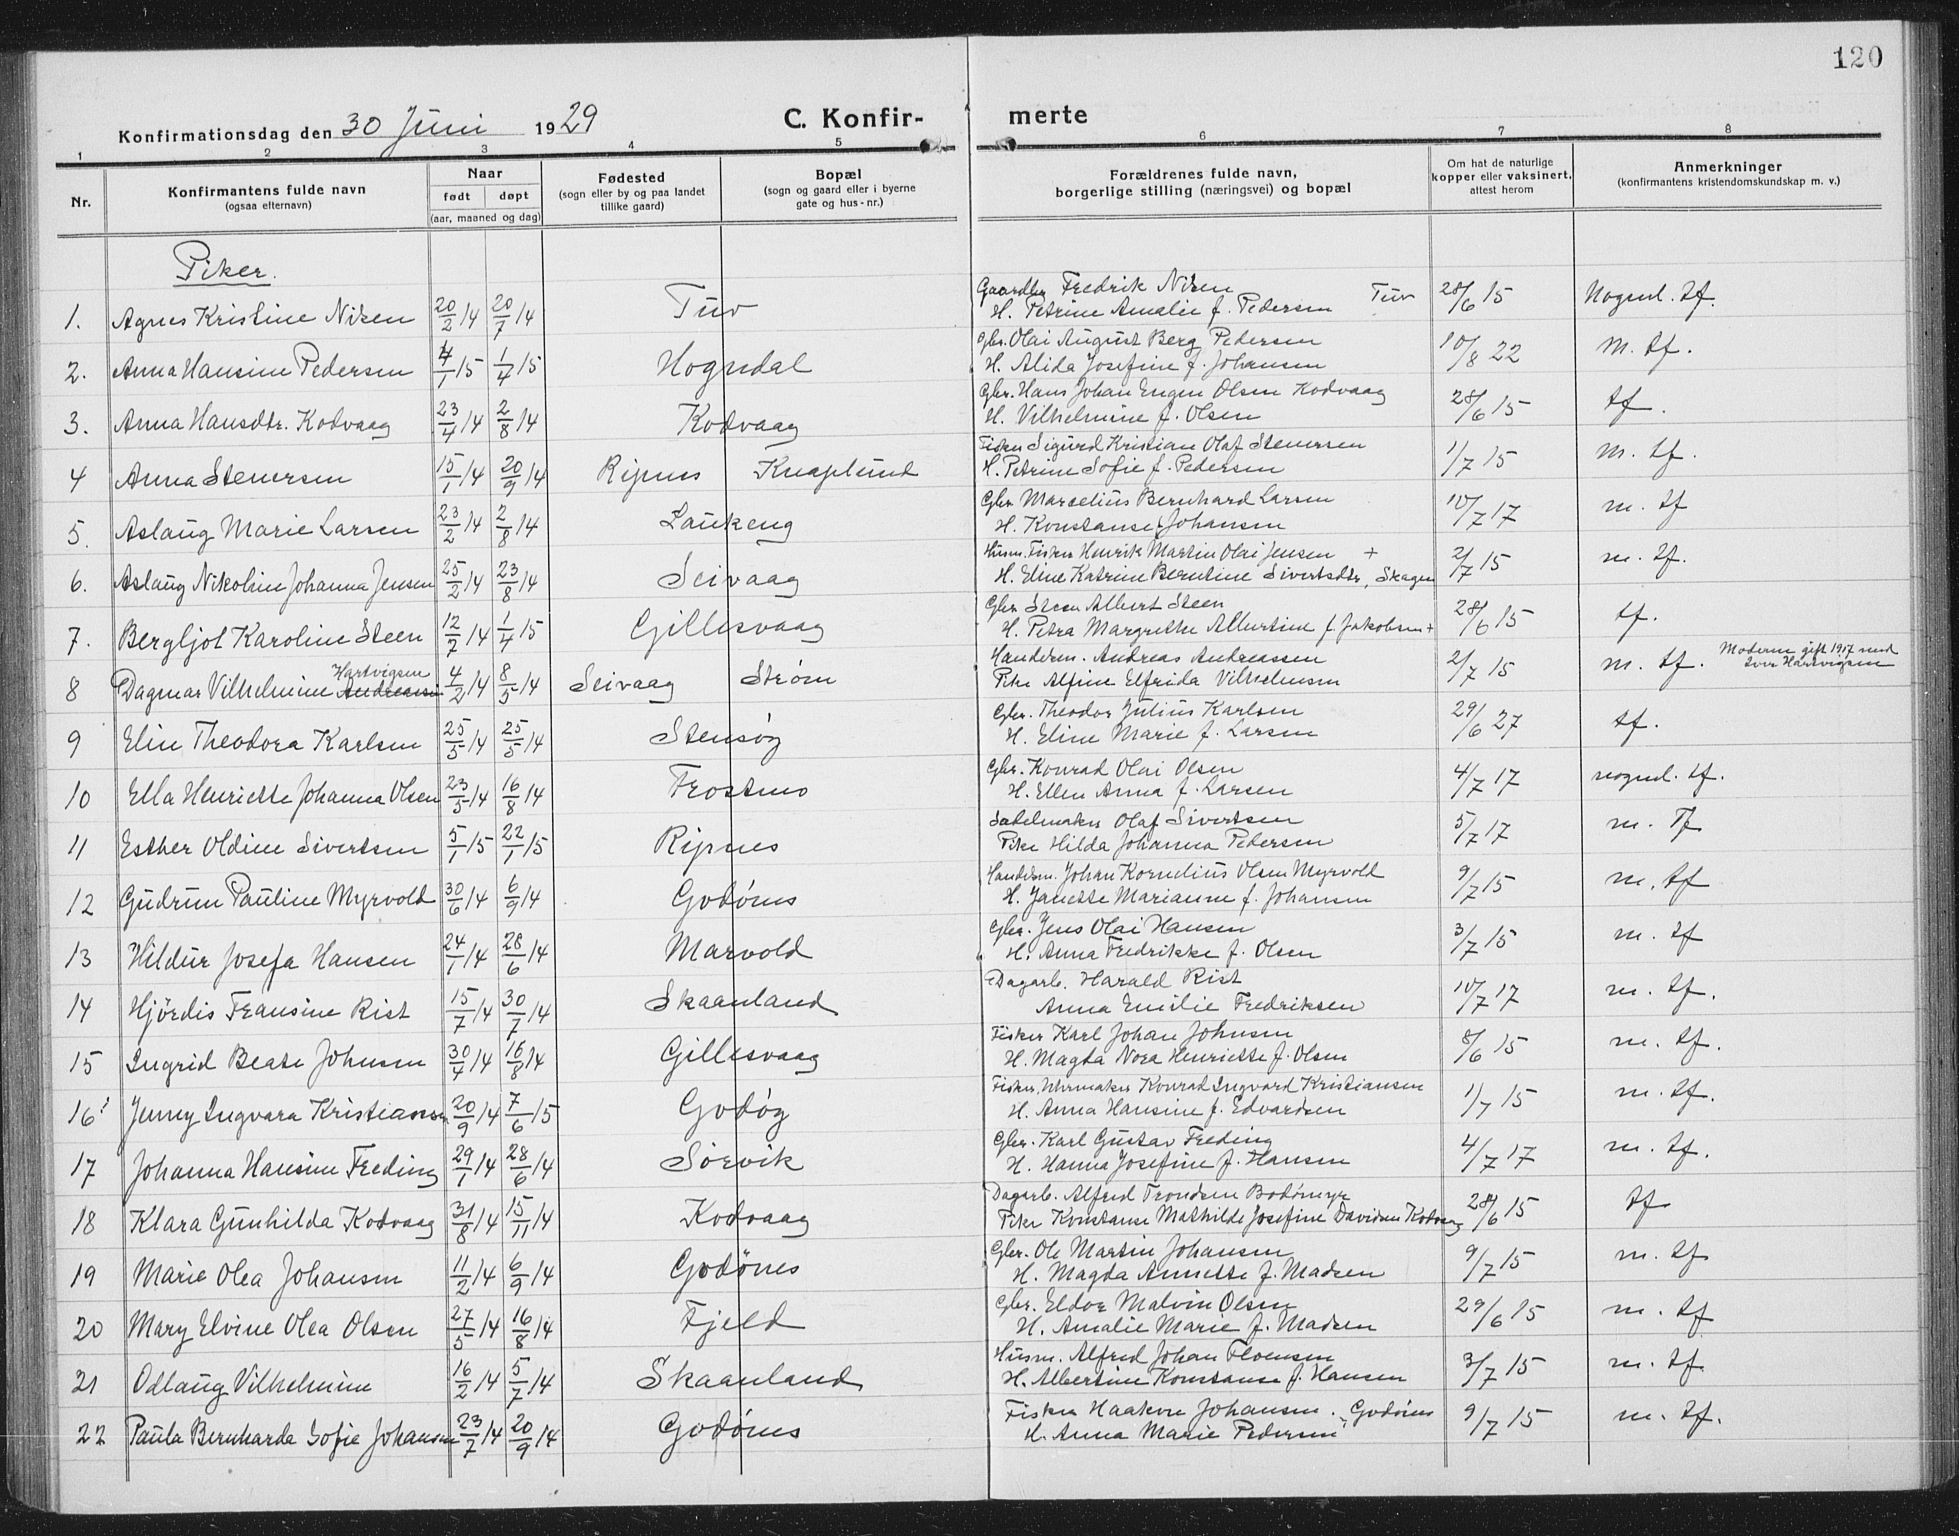 120
Konfirmationsdag den 30 Juni 1929 C. Konfir- merte
1 2 3 4 5 6 7 8
Nr. Konfirmantens fulde navn (ogsaa efternavn) Naar født døpt (aar, maaned og dag) Fødested (sogn eller by og paa landet tillike gaard) Bopæl (sogn og gaard eller i byerne gate og hus-nr.) Forældrenes fulde navn, borgerlige stilling (næringsvei) og bopæl Om hat de naturlige kopper eller vaksinert, attest herom Anmerkninger (konfirmantens kristendomskundskap m. v.)
Piker.
1. Agnes Kristine Nilsen 20/2 14 20/7 14 Tuv Gaardbr Fredrik Nilsen Tuv 28/6 15 Nogenl. tf.
H. Petrine Amalie f. Pedersen
2. Anna Hansine Pedersen 4/1 15 1/4 15 Hogndal Gbr. Olai August Berg Pedersen 10/8 22 M. tf.
H. Alida Josefine f. Johansen
3. Anna Hansdtr. Kodvaag 23/4 14 2/8 14 Kodvaag Gbr. Hans Johan Engen Olsen Kodvaag 28/6 15 tf.
H. Vilhelmine f. Olsen
4 Anna Stenersen 15/1 14 20/9 14 Ripnes Knaplund Fisker Sigurd Kristian Olaf Stenersen 1/7 15 m. tf.
H. Petrine Sofie f. Pedersen
5. Aslaug Marie Larsen 23/2 14 2/8 14 Laukeng Gbr. Marcelius Bernhard Larsen 10/7 17 m. tf
H. Konstanse f. Johansen
6. Aslaug Nikoline Johanna Jensen 25/2 14 23/8 14 Seivaag Husm. Fisker Henrik Martin Olai Jensen + 2/7 15 m. tf.
H. Eline Katrine Berntine Sivertsdtr, Skagen
7. Bergljot Karoline Steen 12/7 14 1/4 15 Gillesvaag Gbr. Steen Albert Steen 28/6 15 tf.
H. Petra Margrethe Albertine f. Jakobsen +
8 Dagmar Vilhelmine Andreassen Hartvigsen 4/2 14 8/5 14 Seivaag Strøm Handelsm. Andreas Andreassen 2/7 15 m. tf. Moderen gift 1917 med Iver Hartvigsen
Pike Alfine Elfrida Vilhelmsen
9 Elin Theodora Karlsen 25/5 14 25/5 14 Stensøy Gbr. Theodor Julius Karlsen 29/6 27 tf.
H. Eline Marie f. Larsen
10 Ella Henriette Johanna Olsen 23/5 14 16/8 14 Frostmo Gbr. Konrad Olai Olsen 4/7 17 nogenl. tf.
H. Ellen Anna f. Larsen
11 Esther Oldine Sivertsen 5/1 15 22/1 15 Ripnes Sadelmaker Olaf Sivertsen 5/7 17 m. Tf
Pike Hilda Johanna Pedersen
12 Gudrun Pauline Myrvold 30/6 14 6/9 14 Godønes Handelsm. Johan Kornelius Olsen Myrvold 9/7 15 m. tf
H. Janette Marianne f. Johansen
13 Hildur Josefa Hansen 24/1 14 28/6 14 Marvold Gbr. Jens Olai Hansen 3/7 15 m. tf
H. Anna Fredrikke f. Olsen
14 Hjørdis Fransine Rist 15/7 14 30/7 14 Skaanland Dagarb. Harald Rist 10/7 17 m. tf.
Anna Emilie Fredriksen
15 Ingrid Beate Johnsen 30/4 14 16/8 14 Gillesvaag Fisker Karl Johan Johnsen 8/6 15 m. tf.
H. Magda Nora Henriette f. Olsen
16 Jenny Ingvara Kristiansen 20/9 14 7/6 15 Godøy Fisker, Uhrmaker Konrad Ingvard Kristiansen 1/7 15 m. tf.
H. Anna Hansine f. Edvardsen
17 Johanna Hansine Freding 29/1 14 28/6 14 Sørvik Gbr. Karl Gustav Freding 4/7 17 m. tf.
H. Hanna Josefine f. Hansen
18 Klara Gunhilda Kodvaag 31/8 14 15/11 14 Kodvaag Dagarb. Alfred Trondsen Bodømyr 28/6 15 tf
Pike Konstanse Mathilde Josefine Davidsen Kodvaag
19 Marie Olea Johansen 11/2 14 6/9 14 Godønes Gbr. Ole Martin Johansen 9/7 15 m. tf
H. Magda Annette f. Madsen
20 Mary Elvine Olea Olsen 27/5 14 16/8 14 Fjeld Gbr. Eldor Malvin Olsen 29/6 15 m. tf
H. Amalie Marie f. Madsen
21 Odlaug Vilhelmine 16/2 14 5/7 14 Skaanland Husm. Alfred Johan 3/7 15 m. tf.
H. Albertine Konstanse f. Hansen
22 Paula Bernharda Sofie Johansen 23/7 14 20/9 14 Godønes Fisker Haakon Johansen. Godønes 9/7 15 m. tf.
H. Anna Marie Pedersen